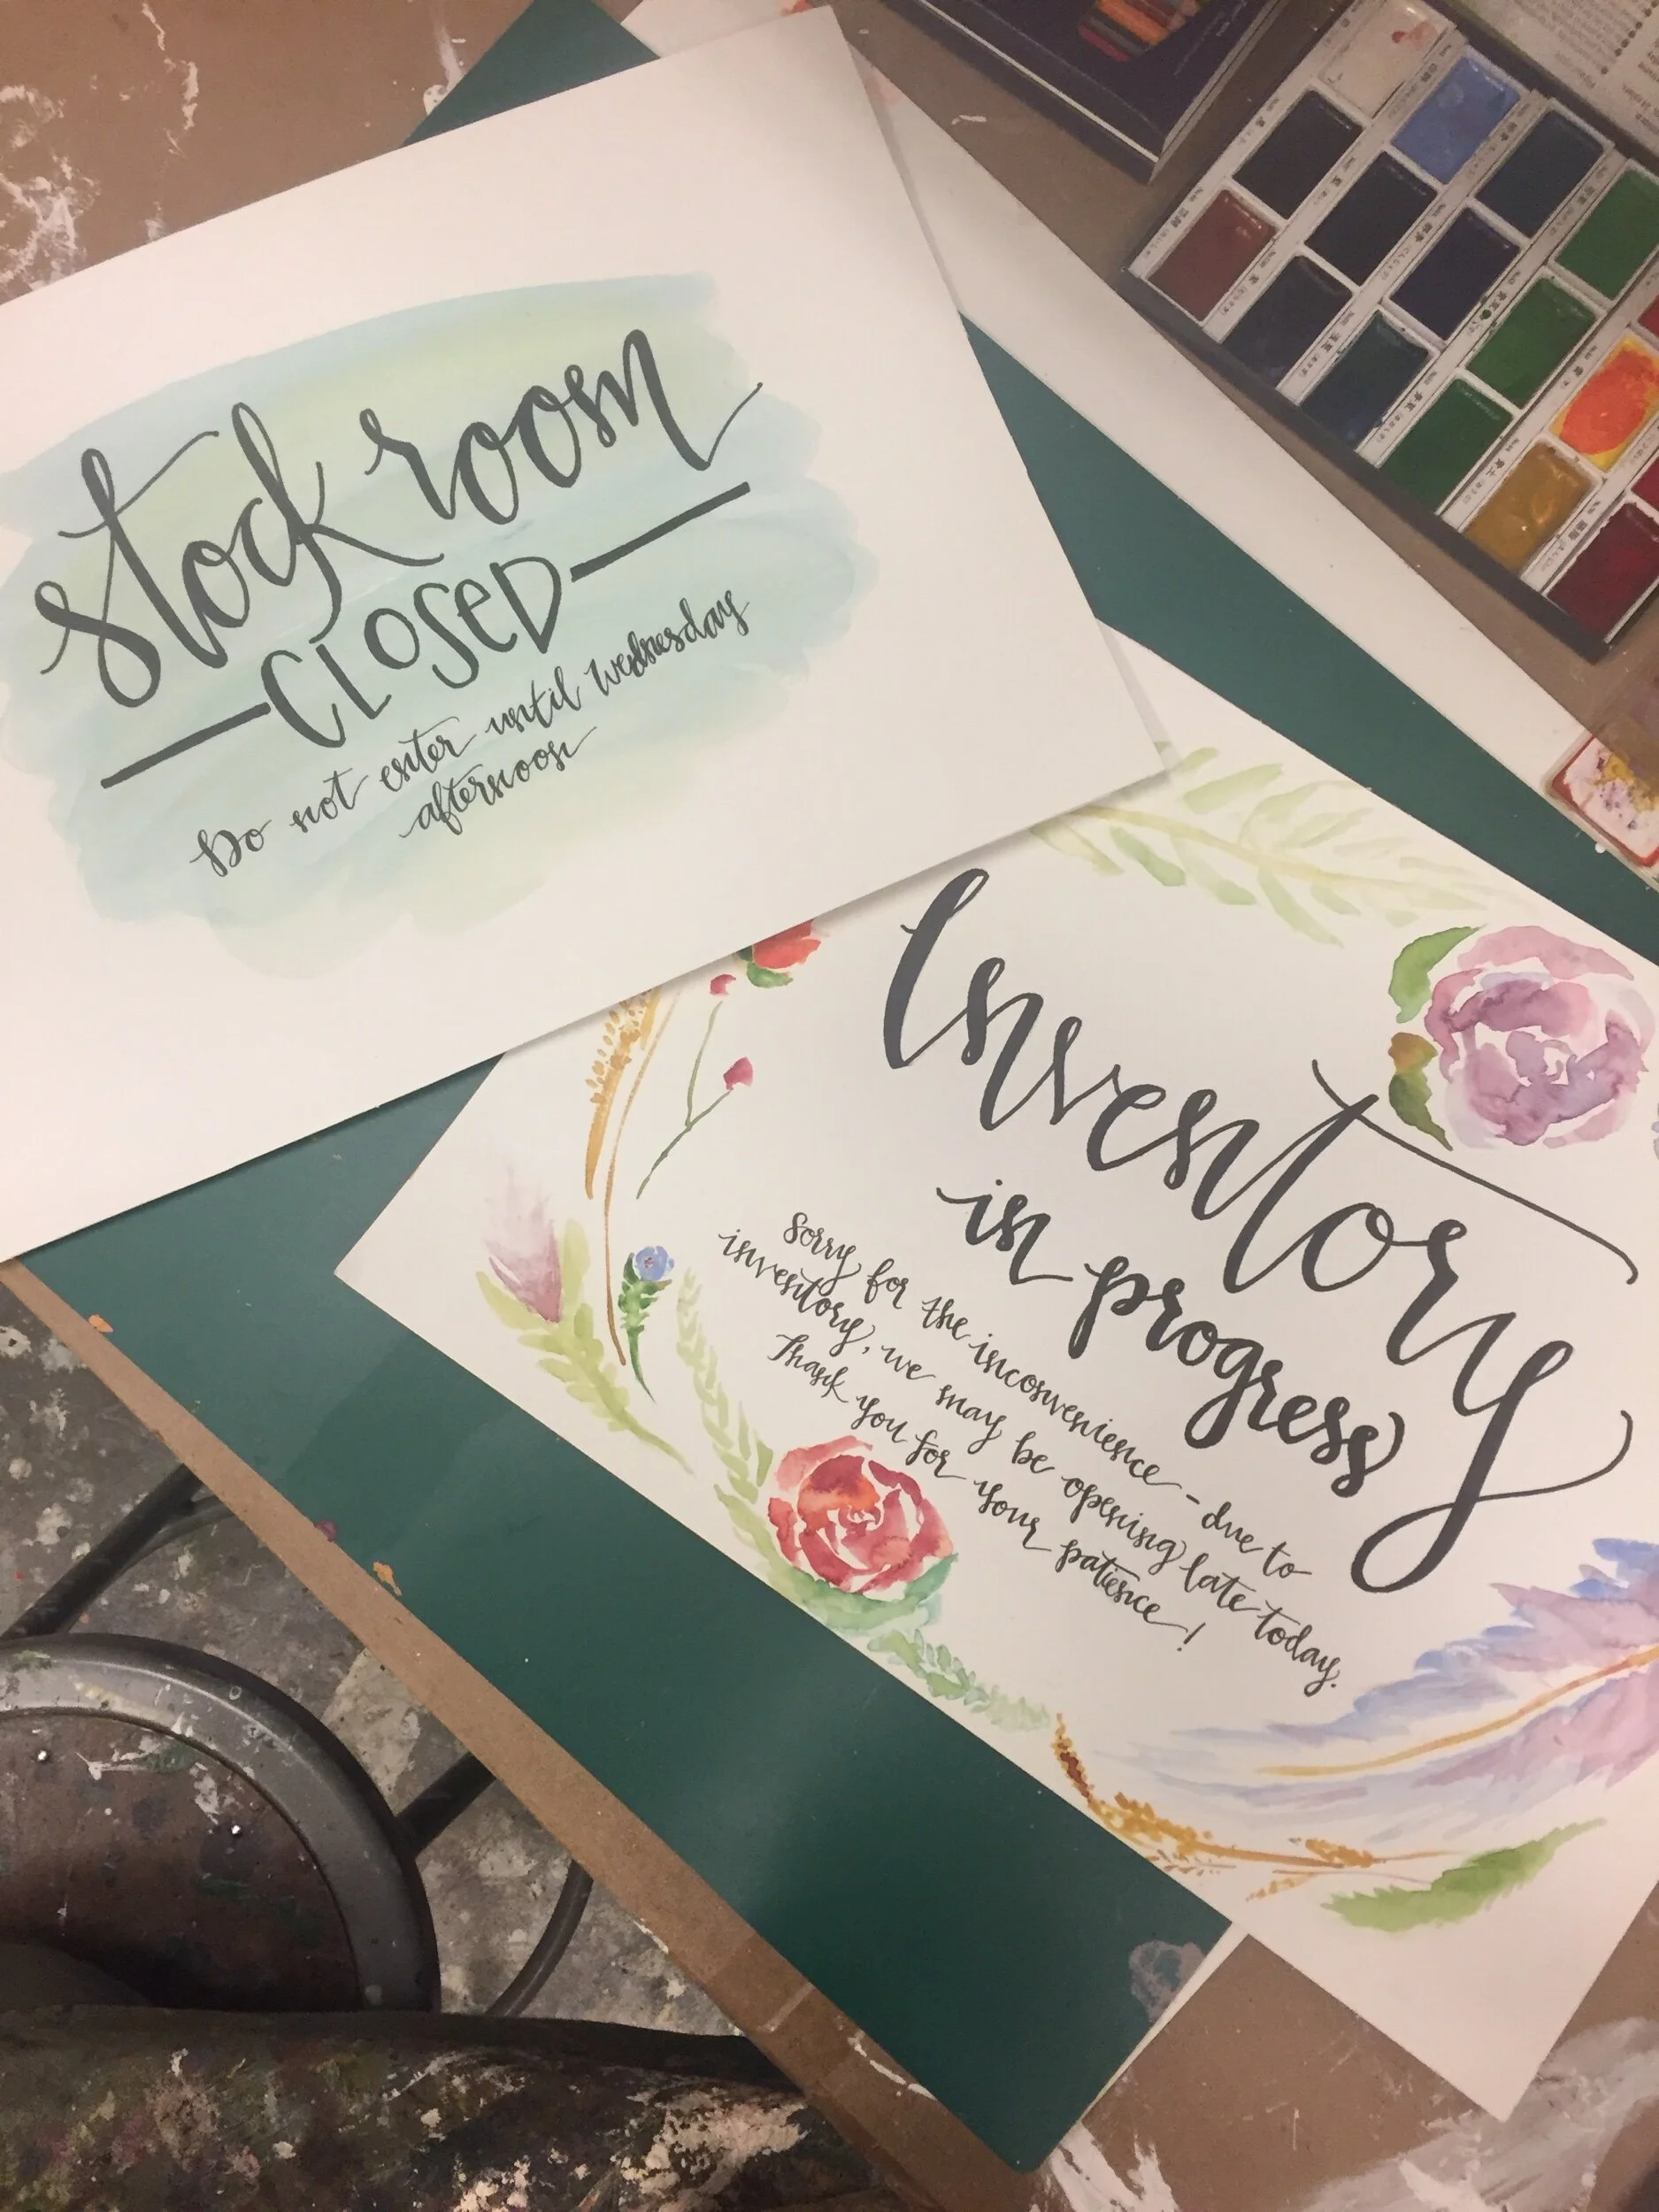 stock room
CLOSED
Do not enter until Wednesday
afternoon
Inventory
in progress
Sorry for the inconvenience - due to
inventory, we may be opening late today.
Thank you for your patience!